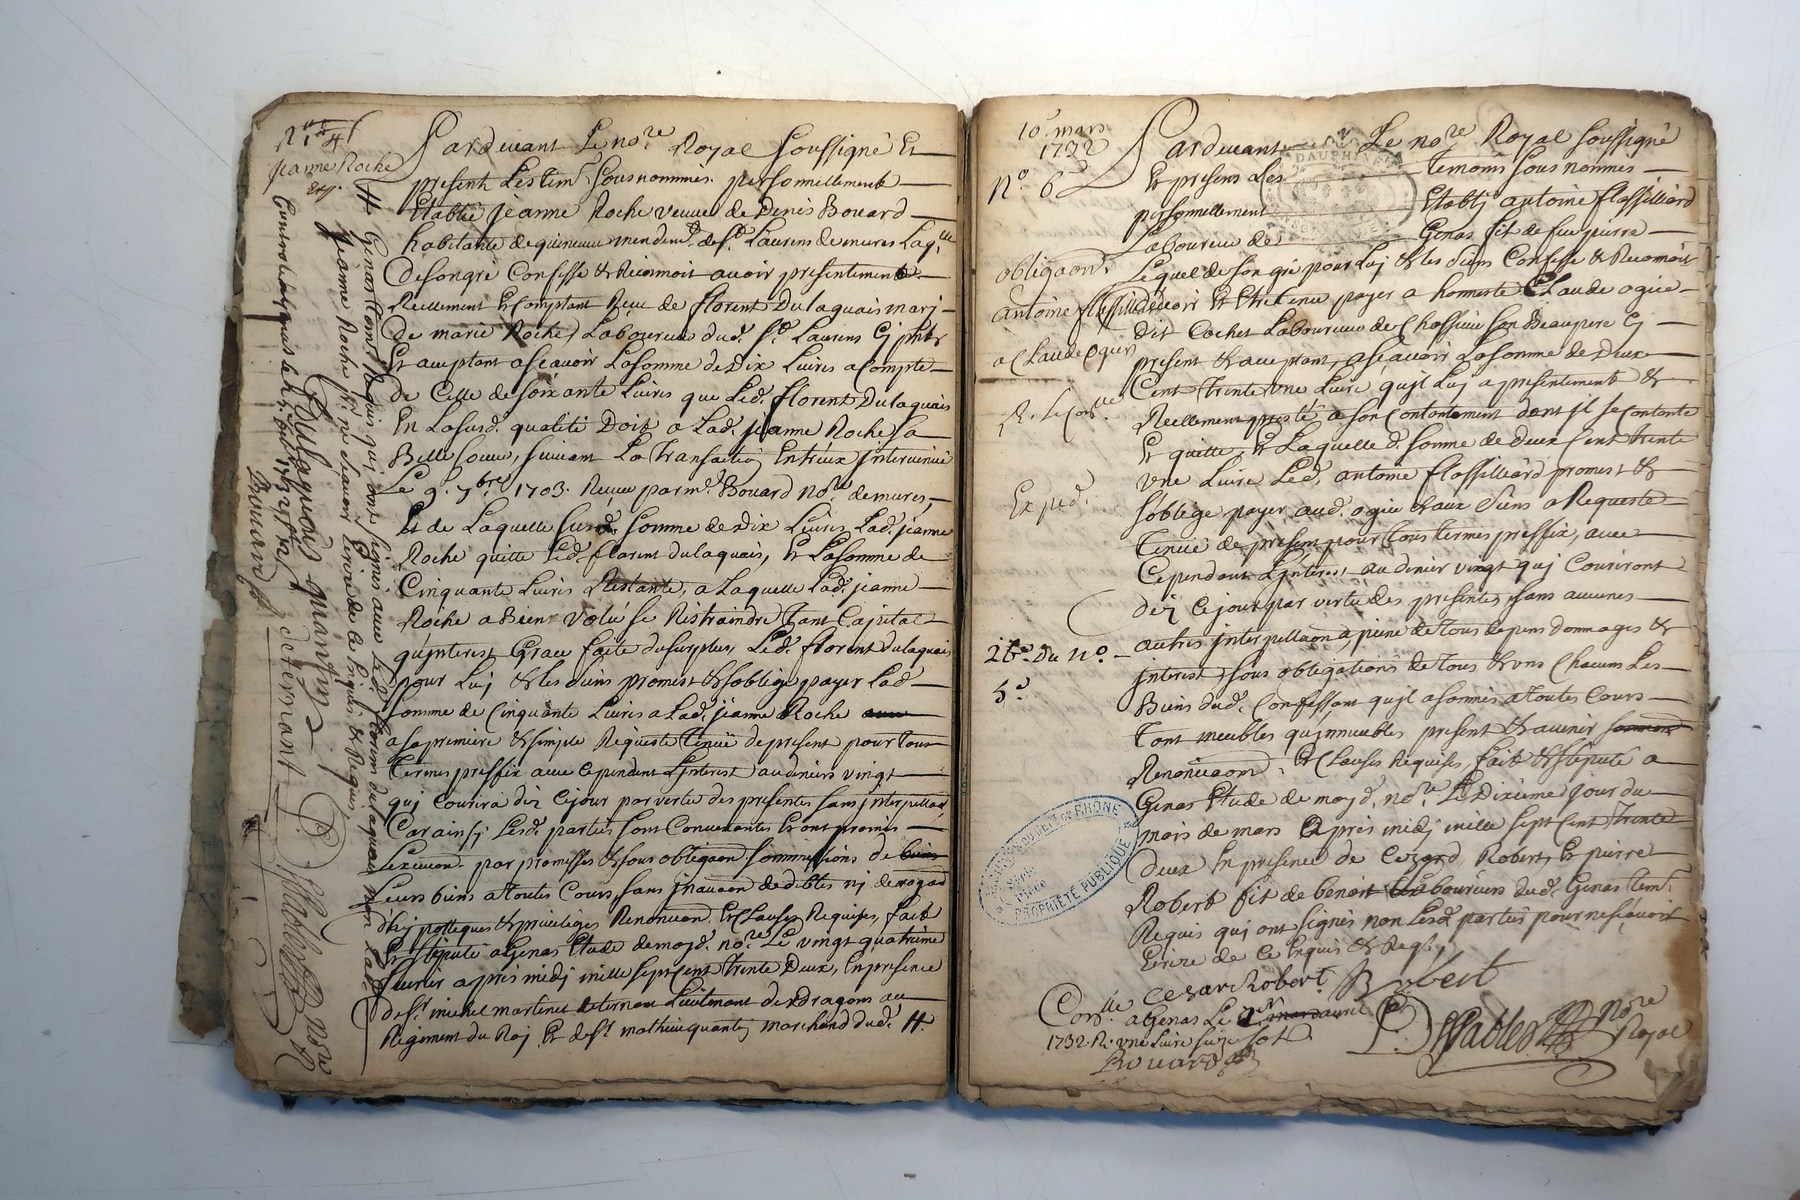 Jeanne Roche
Pardevant Le no.re Royal Soussigné Et
present Les tem.s Sousnommés personnellement
Etablië jeanne Roche veuve de Denis Bouard
habitante de quineuu mendem.t de s.t Laurens demures Laq.lle
De songré Confesse & Reconnoit avoir presentement
Reellement Et Comptant Reçu de florent Dulaquais marj
De marie Roche, Laboureur dud. S.t Laurens Cj pnt &
Et aceptant ascavoir La somme de Dix Livres acompte
de Celle de soixante Livres que Led. florent Dulaquais
En La susd. qualité Doit a Lad. jeanne Roche sa
Belle soeur, suivant La Transaction Entreux jntervenüe
Le 9. 7.bre 1703. Receue par m.e Bouard no.re de mures,
Et de Laquelle susd. somme de Dix Livres Lad. jeanne
Roche quitte Led. florent dulaquais, Et La somme de
Cinquante Livres Restante, a Laquelle Lad. jeanne
Roche a Bien volu se Restraindre Tant Capital
qu'jnterest Grace faite du surplus, Led. florent Dulaquais
pour Luj & les siens promest & s'oblige payer Lad.
somme de Cinquante Livres a Lad. jeanne Roche
a sa premiere & simple Requeste Tenüe de present pour Tous
Termes preffix avec Cependent L'jnterest au denier vingt
quj Courira déz Cejour par vertu des presentes sans jnterpellaõn
Car ainsj Lesd. parties sont Convenantes Et ont promis
par promesses & sous obligaõn sommissions de
Leurs biens a Toutes Cours, sans
d'hipotteques & privileges Renonciaõn Et Clauses Requises, fait
Et stipulé a Genas Etude de moyd. no.re Le vingt quatrieme
fevrier apres midj mille sept Cent Trente Deux, En presence
de s.r michel martinet deternant Lieutenant de dragons au
Regiment du Roj Et de s.r mathieu quantin marchand dud. #
# Genas Tem.s Requis quj ont signés avec Led. florent dulaquais non Lad.
jeanne Roche p.r ne sçavoir Ecrire de Ce Enquis & Requis,
Dulaquais quantin
deternant
Bouard
10 mars
1732
N.o 6
obligaõn
Antoine flassilliard
a Claude ogier
Exped.
Pardevant Le no.re Royal soussigné
Et presens Les Temoins sous nommes
personnellement Etablj antoine flassilliard
Laboureur de Genas fit de feu pierre
Lequel de son gré pour Luj & les siens Confesse & Reconoit
devoir Et Etre Tenu payer a honneste Claude ogier
Dit Cochet Laboureur de Chassieu son Beaupere Cj
present & aceptant, ascavoir La somme de Deux
Cent Trente une Livre qu'jl Luj a presentement &
Reellement presté a son Contentement dont jl se Contente
Et quitte, Et Laquelle d. somme de Deux Cent Trente
une Livre Led. antoine flassilliard promest &
s'oblige payer aud. ogier & aux siens a Requeste
Tenüe de present pour Tous Termes preffix, avec
Cependant L'jnterest au denier vingt quj Couriront
déz Cejour par vertu des presentes, sans aucunes
autres jnterpellaõn, a peine de tous depens dommages &
jnterest, sous obligations de tous & uns Chacuns Les
Biens dud. Confessant qu'jl a soumis a Toutes Cours
Tant meubles qu'jmmeubles present & avenir
Renonciaõn, Et Clauses Requises, fait & stipulé a
Genas Etude de moyd. no.re Le Dixieme jour du
mois de mars apres midj mille sept Cent Trente
deux En presence de Cezard Robert, Et pierre
Robert fit de benoit Laboureurs dud. Genas Tem.s
Requis quj ont signés non Lesd. parties pour ne sçavoir
Ecrire de Ce Enquis & Req.s,
Cesar Robert
Robert
a Genas Le
1732 R. une Livre
Bouard
no.re
Royal
DAUPHINE
PROPRIÉTÉ PUBLIQUE